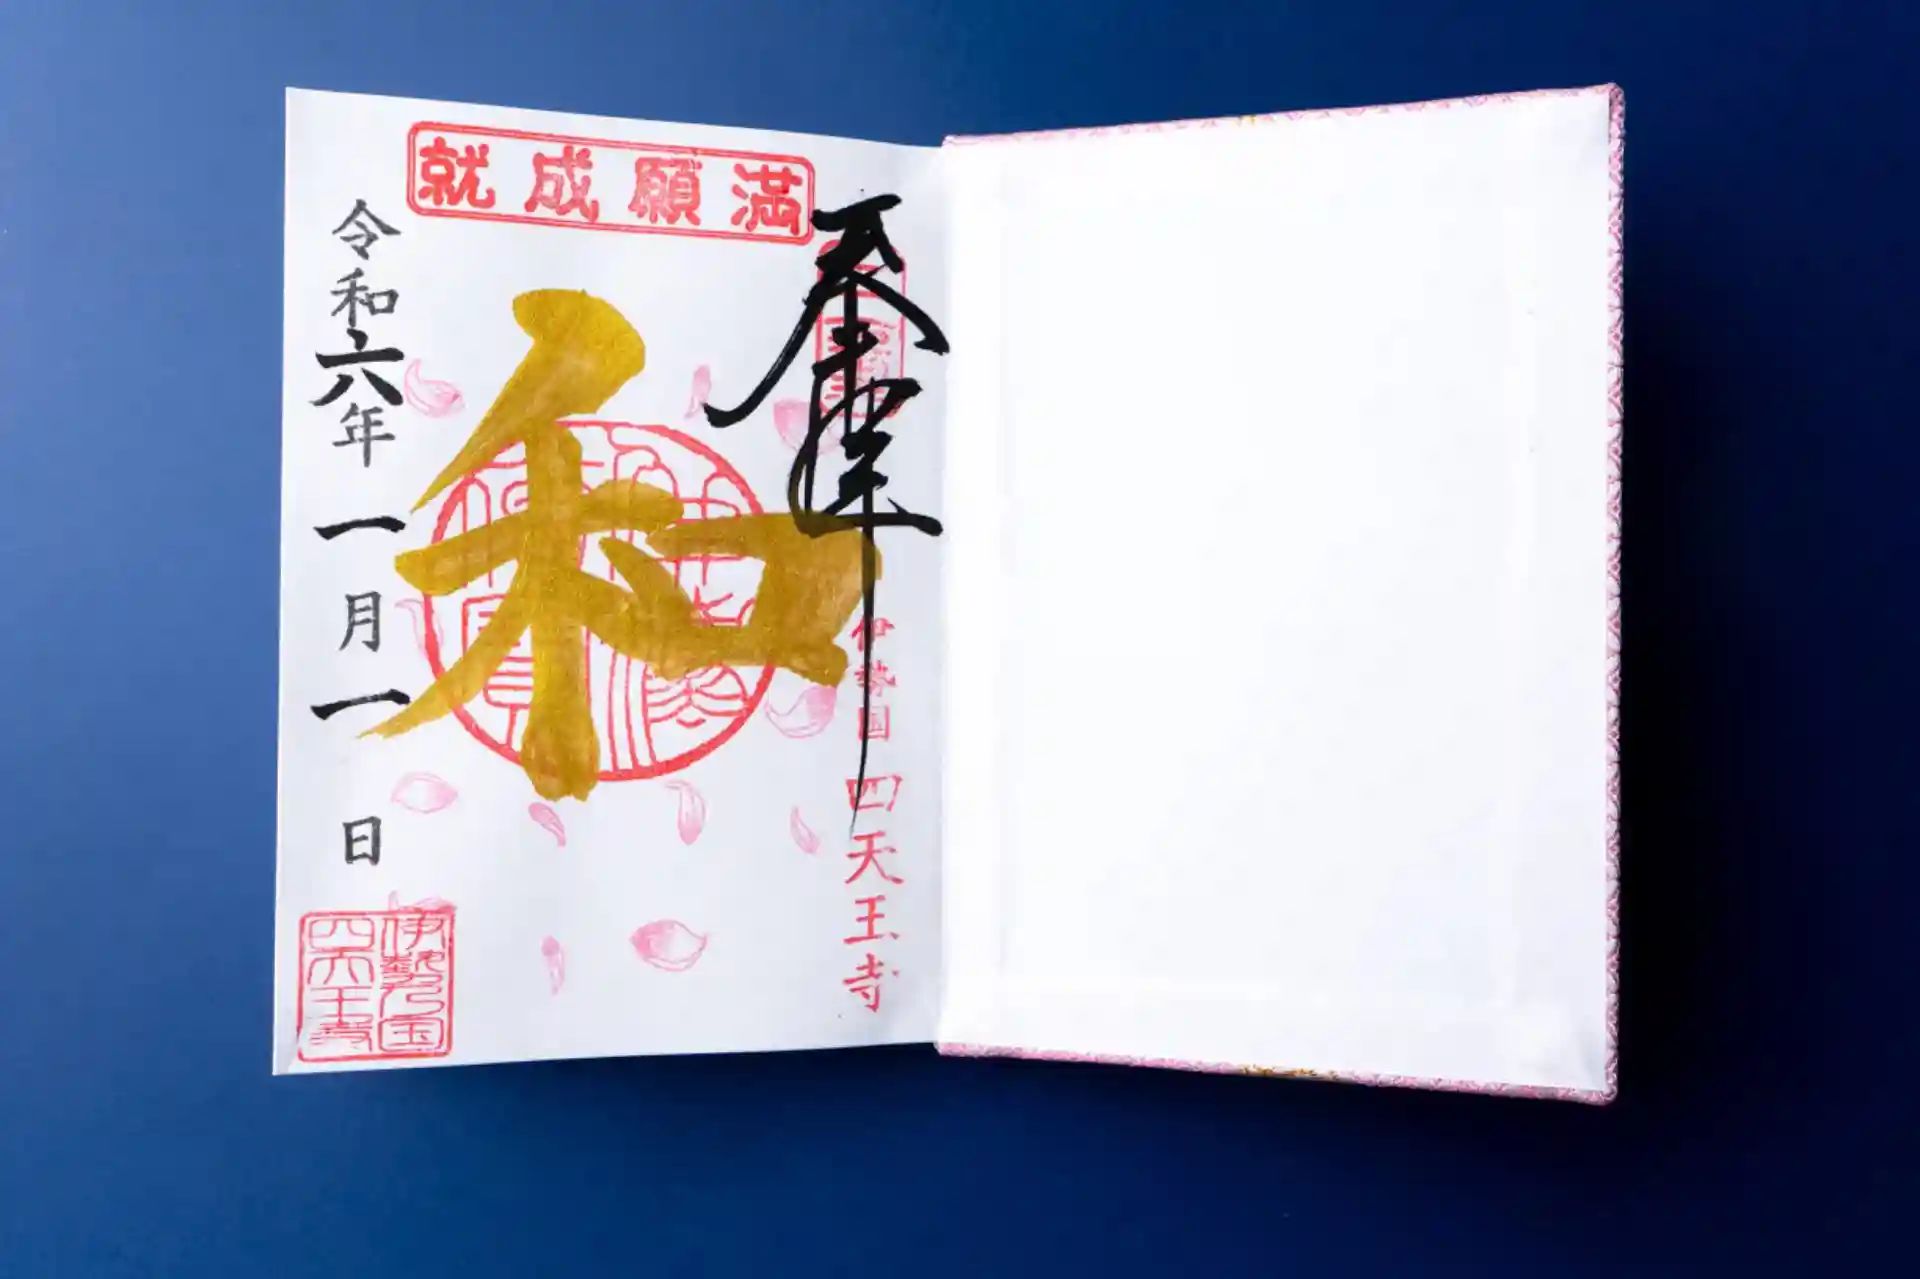 満願成就
奉拝
伊勢国 四天王寺
和
令和六年一月一日
伊勢国
四天王寺